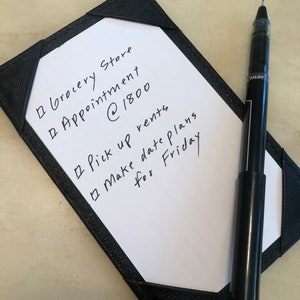 ☐ Grocery Store
☐ Appointment
@1800
☐ Pick up rents
☐ Make date plans
for Friday
PILOT